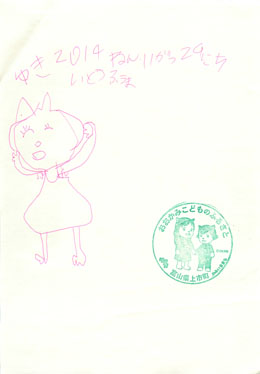 ゆき 2014 ねん 11がつ 29にち
いとう るま
おおかみこどものふるさと
富山県上市町